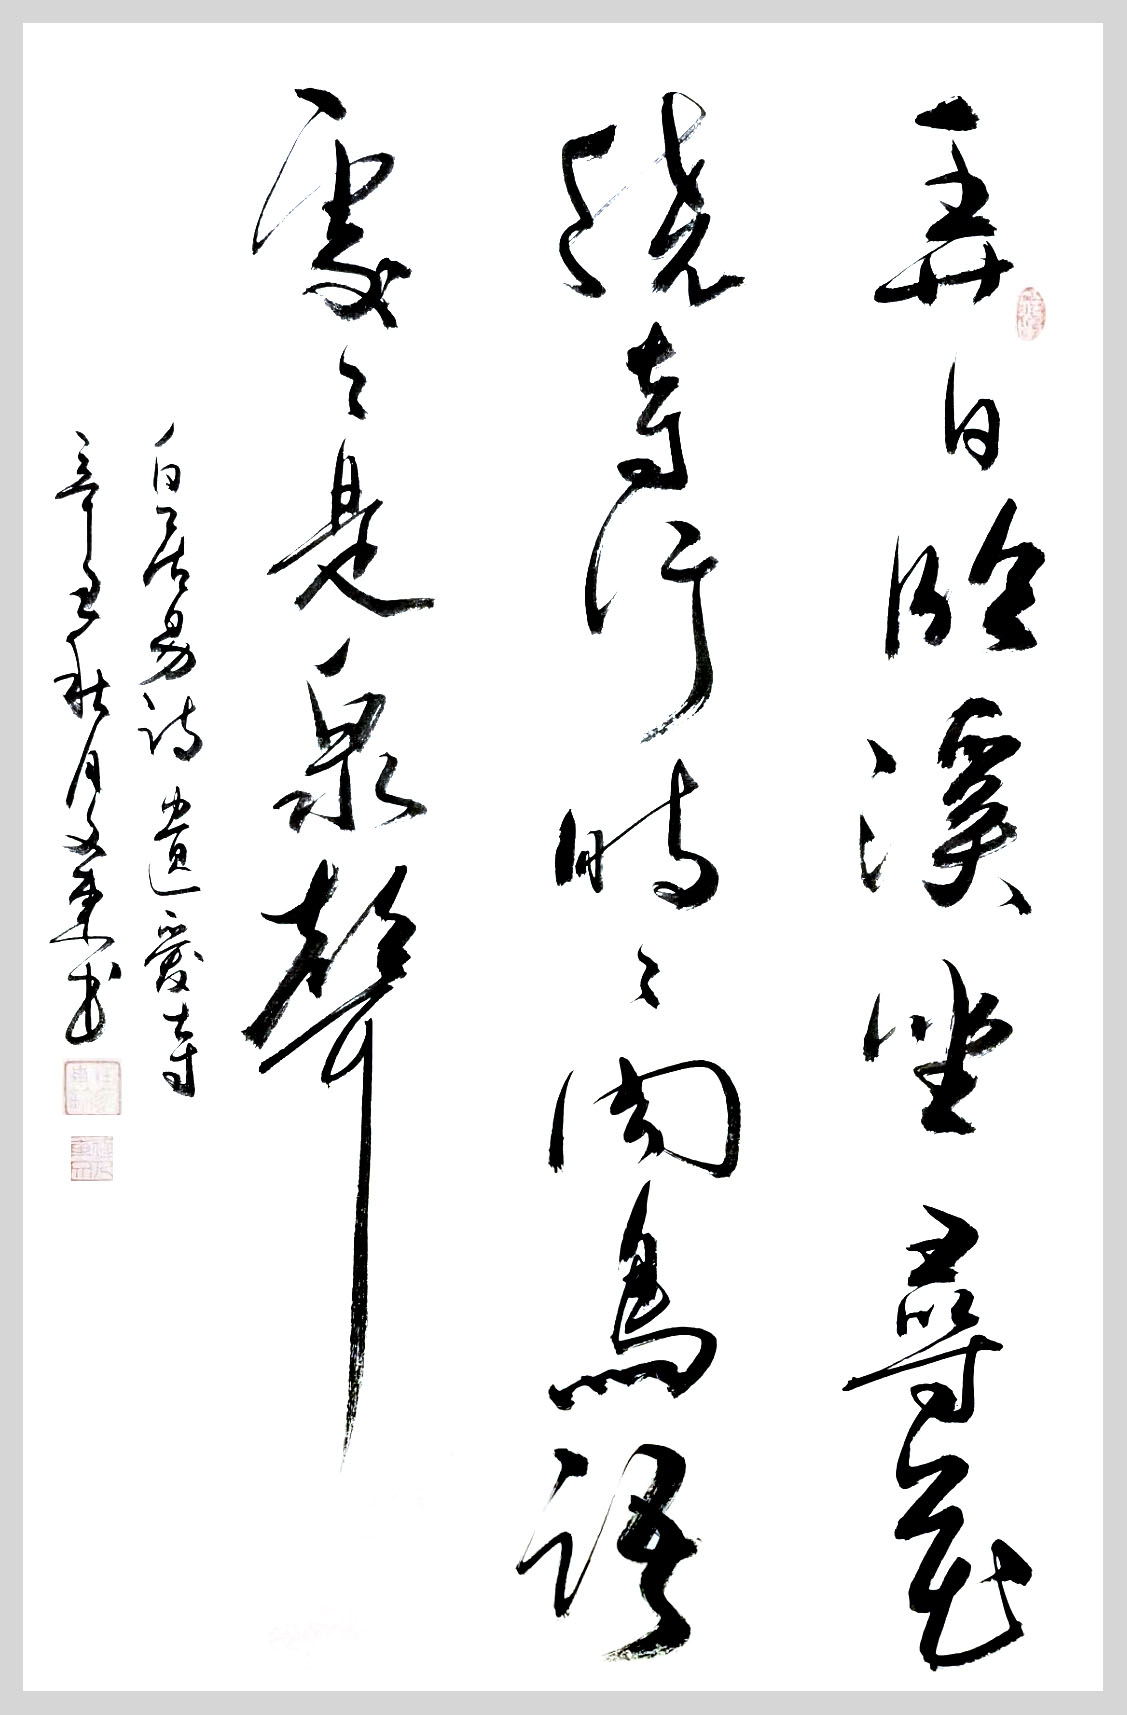 弄日臨溪坐尋花
繞寺行時々聞鳥語
處々是泉聲
白居易詩遺愛寺
辛丑秋月文東書